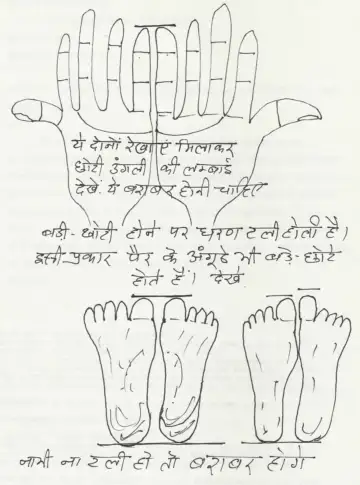 ये दोनों रेखाएं मिलाकर
छोटी उंगली की लम्बाई
देखें. ये बराबर होनी चाहिए
बडी-छोटी होने पर धरण टली होती है।
इसी प्रकार पैर के अंगूठे भी बड़े-छोटे
होते हैं। देखें.
नाभी ना टली हो तो बराबर होगें